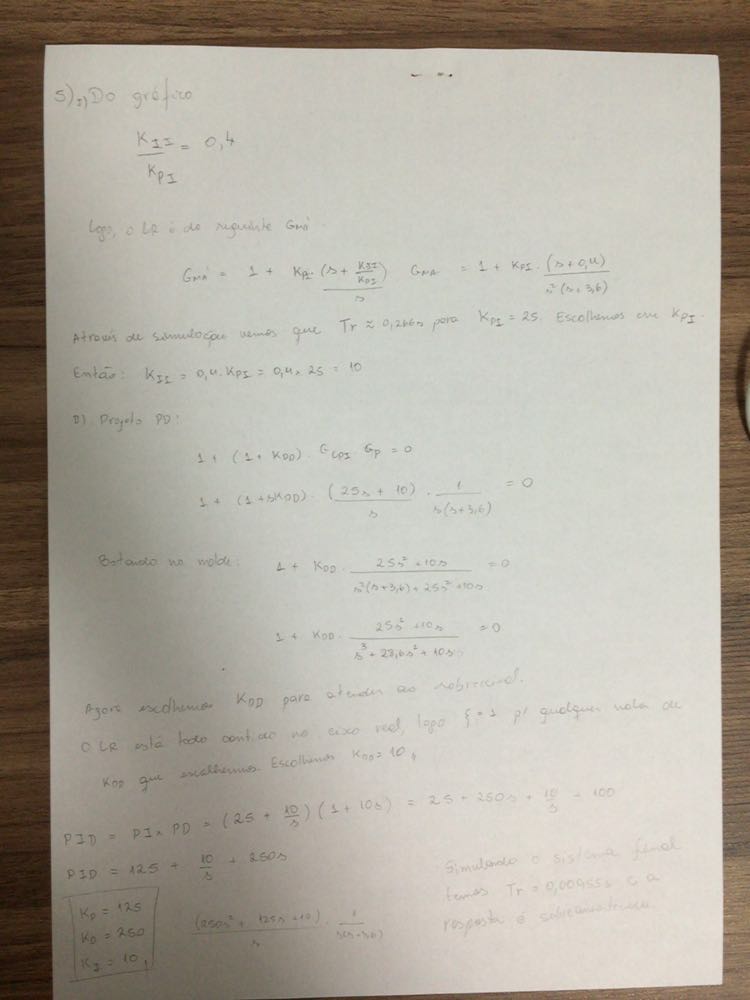 5) I) Do gráfico
K_II / K_PI = 0,4
Logo, o LR é do seguinte GMA:
GMA = 1 + K_PI · (s + K_II/K_PI) / s GMA = 1 + K_PI · (s + 0,4) / s²(s+3,6)
Através de simulação vemos que Tr ≈ 0,266s para K_PI = 25. Escolhemos esse K_PI.
Então: K_II = 0,4 · K_PI = 0,4 × 25 = 10
II) Projeto PD:
1 + (1 + K_DD) · G_CPI · G_P = 0
1 + (1 + sK_DD) · (25s + 10) / s · 1 / s(s+3,6) = 0
Botando no molde: 1 + K_DD · 25s² + 10s / s²(s+3,6) + 25s² + 10s = 0
1 + K_DD · 25s² + 10s / s³ + 28,6s² + 10s = 0
Agora escolhemos K_DD para atender ao sobressinal.
O LR está todo contido no eixo real, logo ξ = 1 p/ qualquer valor de
K_DD que escolhermos. Escolhemos K_DD = 10,
PID = PI × PD = (25 + 10/s) (1 + 10s) = 25 + 250s + 10/s + 100
PID = 125 + 10/s + 250s
K_P = 125
K_D = 250
K_I = 10,
(250s² + 125s + 10) / s · 1 / s(s+3,6)
Simulando o sistema final
temos Tr = 0,00955s e a
resposta é